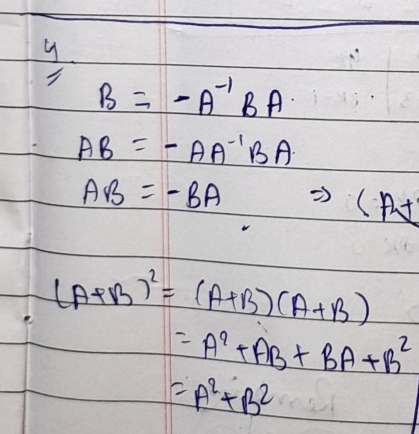 4
B = -A⁻¹BA.
AB = -AA⁻¹BA.
AB = -BA ⇒ (A+
(A+B)² = (A+B)(A+B)
= A² + AB + BA + B²
= A² + B²